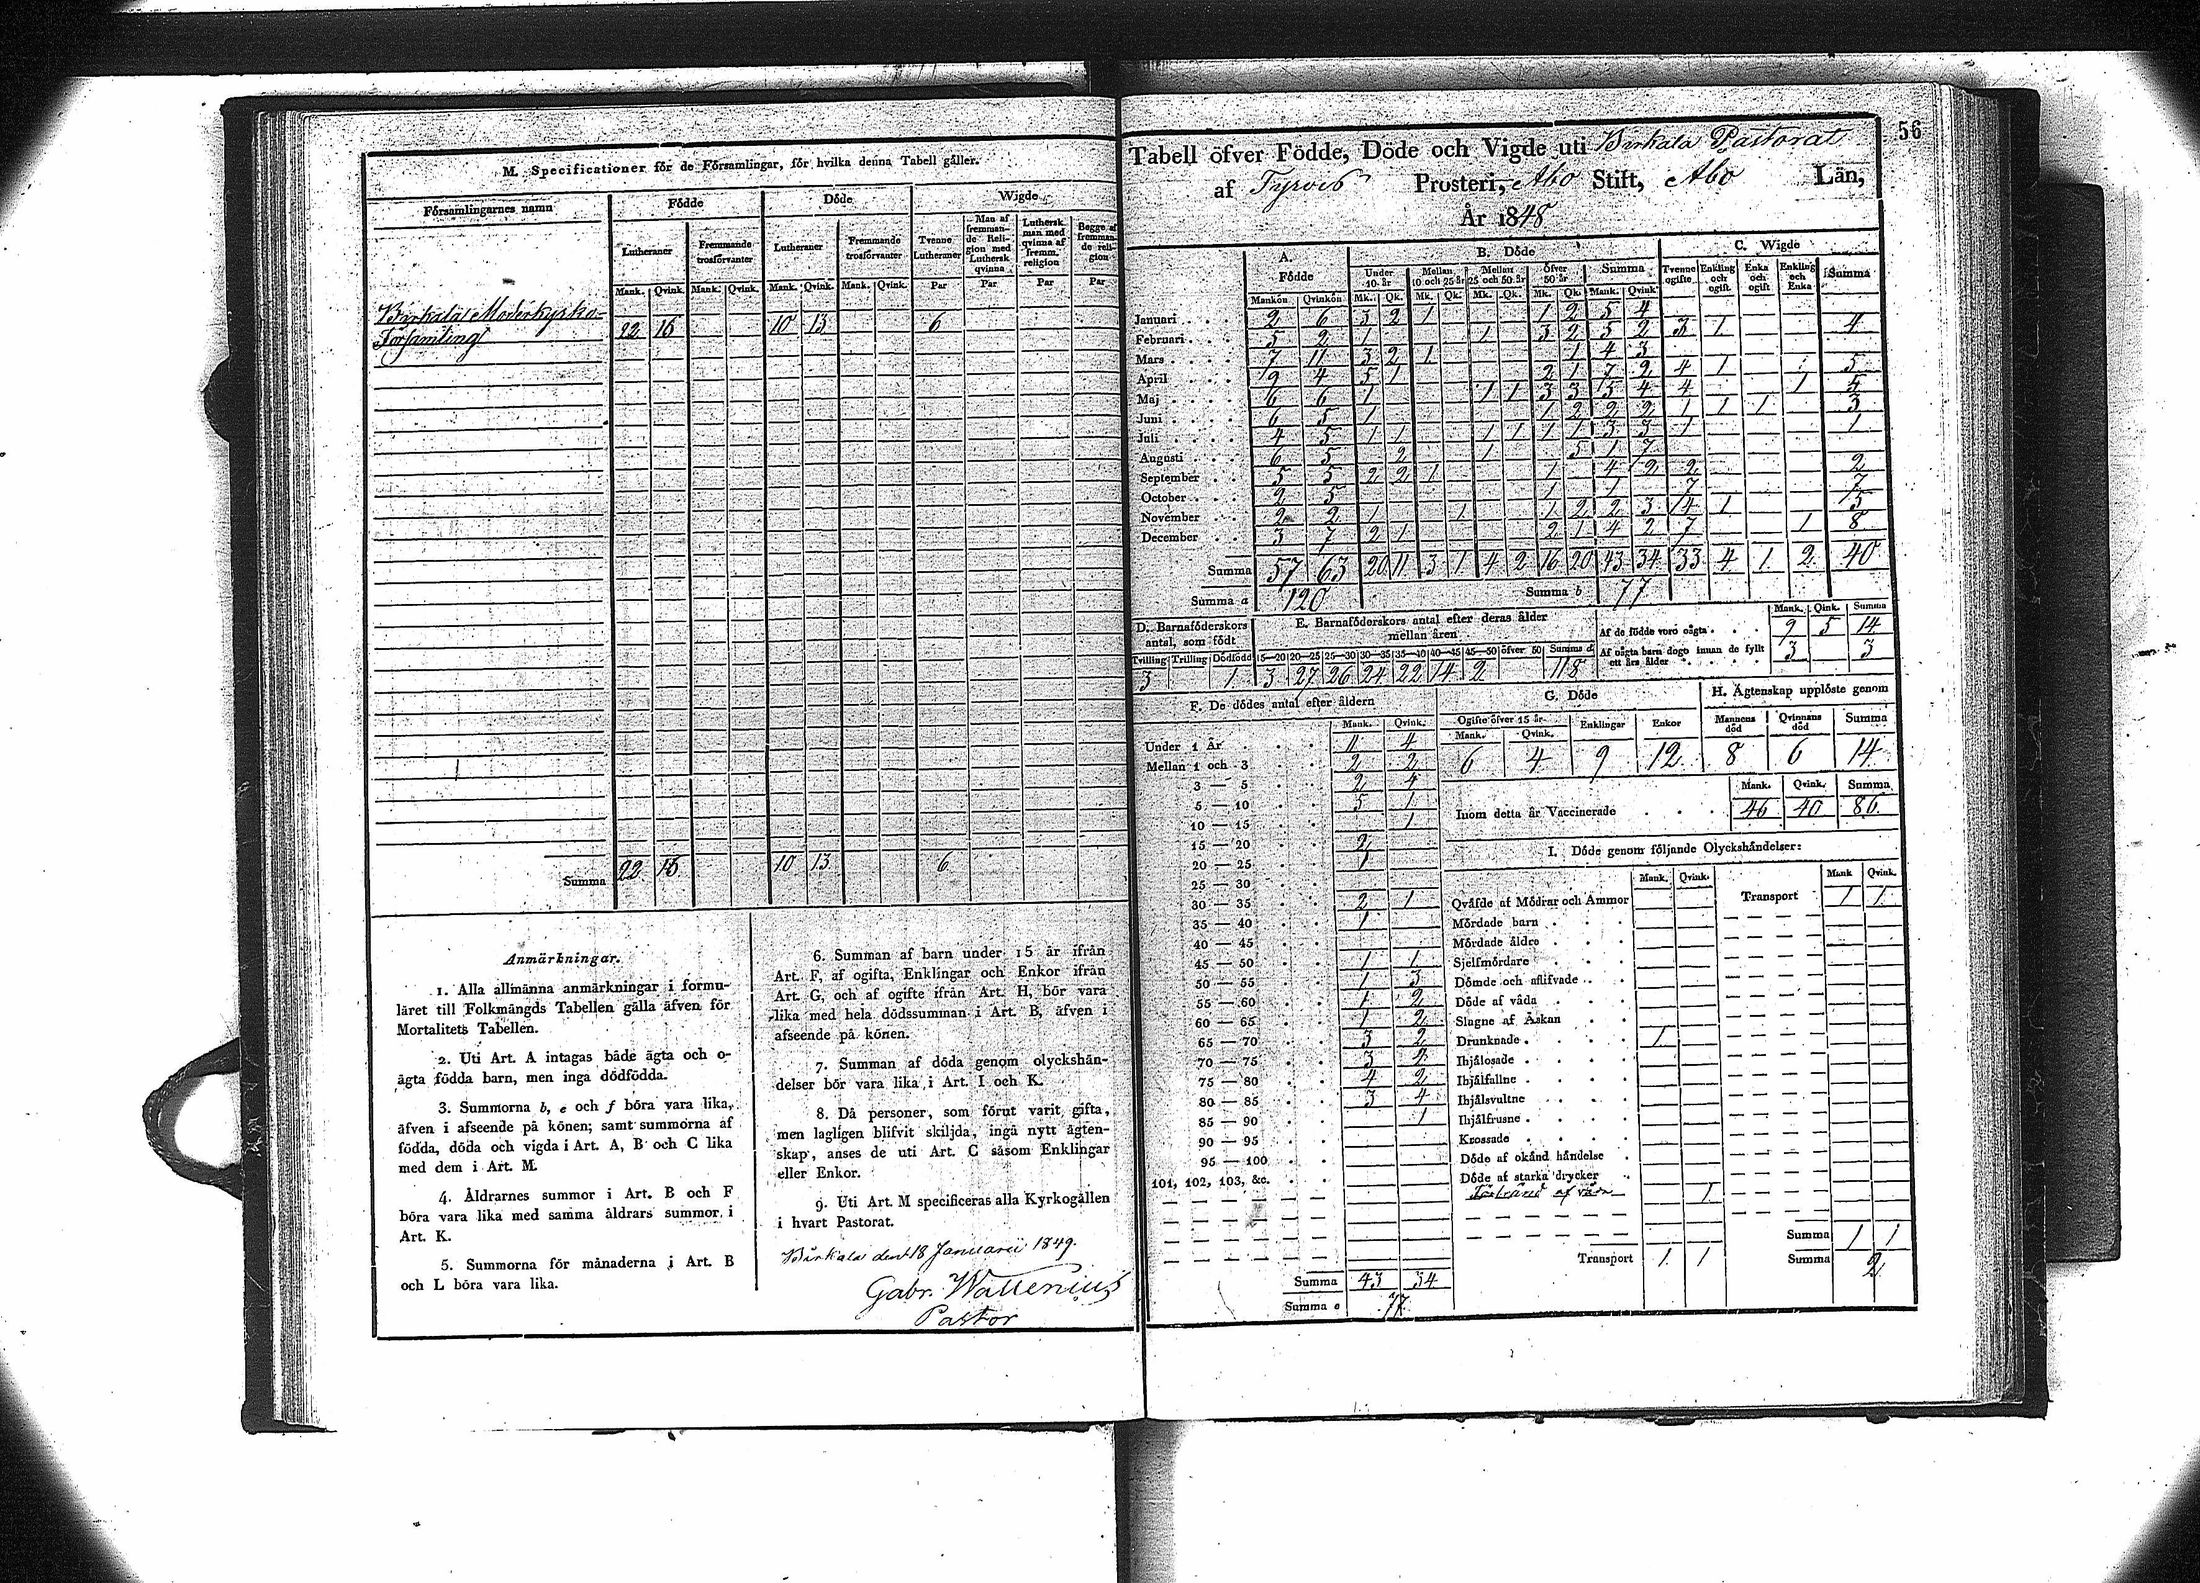 M. Specificationer för de Församlingar, för hvilka denna Tabell gäller.
Församlingarnes namn
Födde
Döde
Wigde
Lutheraner
Fremmande trosförvanter
Lutheraner
Fremmande trosförvanter
Tvenne Lutheraner
Man af fremmande Religion med Luthersk qvinna
Luthersk man med qvinna af fremm. religion
Begge af fremmande religion
Mank. Qvink. Mank. Qvink. Mank. Qvink. Mank. Qvink. Par Par Par Par
Birkala Moderkyrko-
Församling 22 15 10 13 6
Summa 22 15 10 13 6
Anmärkningar.
1. Alla allmänna anmärkningar i formu-
läret till Folkmängds Tabellen gälla äfven för
Mortalitets Tabellen.
2. Uti Art. A intagas både ägta och o-
ägta födda barn, men inga dödfödda.
3. Summorna b, e och f böra vara lika,
äfven i afseende på könen; samt summorna af
födda, döda och vigda i Art. A, B och C lika
med dem i Art. M.
4. Åldrarnes summor i Art. B och F
böra vara lika med samma åldrars summor i
Art. K.
5. Summorna för månaderna i Art. B
och L böra vara lika.
6. Summan af barn under 15 år ifrån
Art. F, af ogifta, Enklingar och Enkor ifrån
Art. G, och af ogifte ifrån Art. H, bör vara
lika med hela dödssumman i Art. B, äfven i
afseende på könen.
7. Summan af döda genom olyckshän-
delser bör vara lika i Art. I och K.
8. Då personer, som förut varit gifta,
men lagligen blifvit skiljda, ingå nytt ägten-
skap, anses de uti Art. C såsom Enklingar
eller Enkor.
9. Uti Art. M specificeras alla Kyrkogällen
i hvart Pastorat.
Birkala den 18 Januarii 1849.
Gabr. Wallenius
Pastor
56
Tabell öfver Födde, Döde och Vigde uti Birkala Pastorat
af Tyrvis Prosteri, Åbo Stift, Åbo Län,
År 1848
A. Födde
B. Döde
C. Wigde
Under 10 år
Mellan 10 och 25 år
Mellan 25 och 50 år
öfver 50 år
Summa
Tvenne ogifte
Enkling och ogift
Enka och ogift
Enkling och Enka
Summa
Mankön Qvinkön Mk. Qk. Mk. Qk. Mk. Qk. Mk. Qk. Mank. Qvink.
Januari 2 6 3 2 1 1 2 5 4
Februari 5 2 1 1 3 2 5 2 3 1 4
Mars 7 11 3 2 1 1 4 3
April 9 4 5 1 2 1 7 2 4 1 5
Maj 6 6 1 1 1 3 3 5 4 4 1 5
Juni 6 5 1 1 2 2 2 1 1 1 3
Juli 4 5 1 1 1 1 1 1 3 3 1 1
Augusti 6 5 2 1 5 1 7
September 5 5 2 2 1 1 4 2 2 2
October 2 5 1 1 7 7
November 2 2 1 1 1 2 2 3 4 1 5
December 3 7 2 1 2 1 4 2 7 1 8
Summa 57 63 20 11 3 1 4 2 16 20 43 34 33 4 1 2 40
Summa a 120 Summa b 77
D. Barnaföderskors antal, som födt
Tvilling Trilling Dödfödd
3 1
E. Barnaföderskors antal efter deras ålder mellan åren
15—20 20—25 25—30 30—35 35—40 40—45 45—50 öfver 50 Summa d
3 27 26 24 22 14 2 118
Mank. Qink. Summa
Af de födde voro oägta 9 5 14
Af oägta barn dogo innan de fyllt ett års ålder 3 3
F. De dödes antal efter åldern
Mank. Qvink.
Under 1 År 11 4
Mellan 1 och 3 2 2
3 — 5 2 4
5 — 10 5 1
10 — 15 1
15 — 20 2
20 — 25 1
25 — 30
30 — 35 2 1
35 — 40 1
40 — 45
45 — 50 1 1
50 — 55 1 3
55 — 60 1 2
60 — 65 1 2
65 — 70 3 2
70 — 75 3 2
75 — 80 4 2
80 — 85 3 4
85 — 90 1
90 — 95
95 — 100
101, 102, 103, &c.
Summa 43 34
Summa e 77
G. Döde
Ogifte öfver 15 år
Mank. Qvink. Enklingar Enkor
6 4 9 12
H. Ägtenskap upplöste genom
Mannens död Qvinnans död Summa
8 6 14
Mank. Qvink. Summa
Inom detta år Vaccinerade 46 40 86
I. Döde genom följande Olyckshändelser:
Mank. Qvink. Mank Qvink.
Qväfde af Mödrar och Ammor Transport 1 1
Mördade barn
Mördade äldre
Sjelfmördare
Dömde och aflifvade
Döde af våda
Slagne af Åskan
Drunknade 1
Ihjälosade
Ihjälfallne
Ihjälsvultne
Ihjälfrusne
Krossade
Döde af okänd händelse
Döde af starka drycker
Förbränd af våda 1
Transport 1 1
Summa 1 1
Summa 2